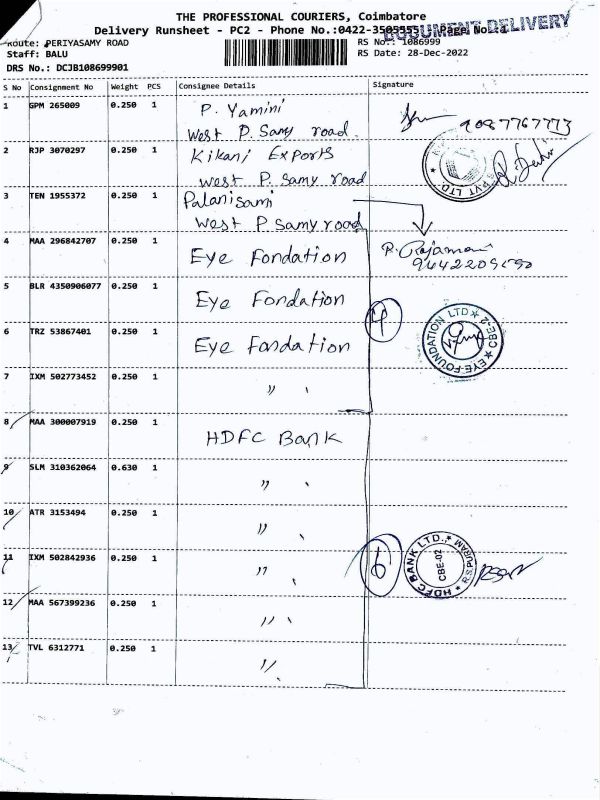 THE PROFESSIONAL COURIERS, Coimbatore
Delivery Runsheet - PC2 - Phone No.:0422-3505555 Page No.:1
DOCUMENT DELIVERY
Route: PERIYASAMY ROAD
RS No.: 1086999
Staff: BALU
RS Date: 28-Dec-2022
DRS No.: DCJB108699901
S No Consignment No Weight PCS Consignee Details Signature
1 GPM 265009 0.250 1 P. Yamini
West P. Samy road. 9087767773
2 RJP 3070297 0.250 1 Kikani Exports
West P. Samy road
PVT LTD.
3 TEN 1955372 0.250 1 Palanisami
West P Samy road
4 MAA 296842707 0.250 1 Eye Fondation
P. Rajamani
5 BLR 4350906077 0.250 1 Eye Fondation
4
EYE FOUNDATION LTD ★ CBE-2 ★
6 TRZ 53867401 0.250 1 Eye Fondation
7 IXM 502773452 0.250 1 〃
8 MAA 300007919 0.250 1 HDFC Bank
9 SLM 310362064 0.630 1 〃
10 ATR 3153494 0.250 1 〃
11 IXM 502842936 0.250 1 〃
6
HDFC BANK LTD., ★ R.S.PURAM ★
CBE-02
12 MAA 567399236 0.250 1 〃
13 TVL 6312771 0.250 1 〃